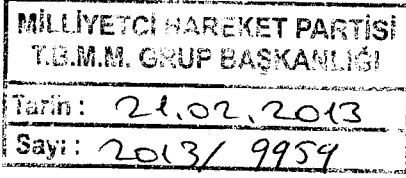 MİLLİYETÇİ HAREKET PARTİSİ
T.B.M.M. GRUP BAŞKANLIĞI
Tarih : 21.02.2013
Sayı : 2013/ 9959